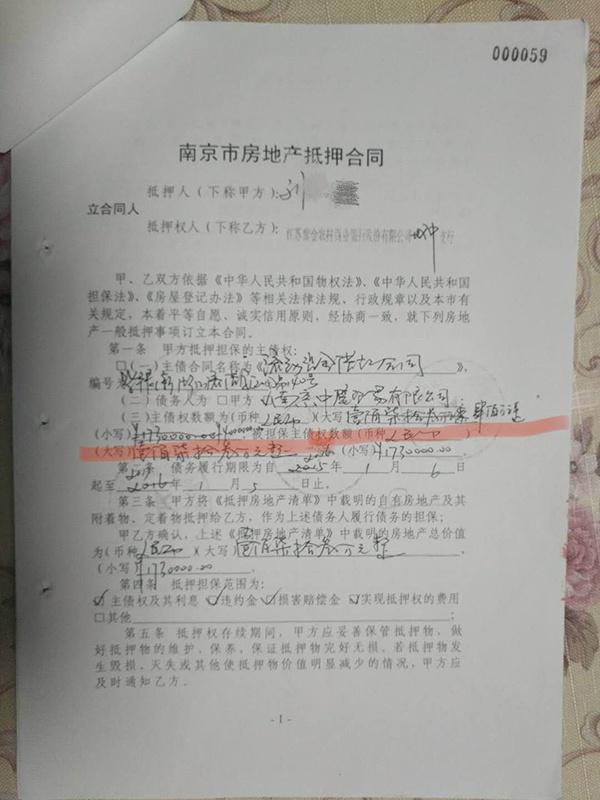 000059
南京市房地产抵押合同
抵押人（下称甲方）：刘
立合同人
抵押权人（下称乙方）：江苏紫金农村商业银行股份有限公司 支行
甲、乙双方依据《中华人民共和国物权法》、《中华人民共和国
担保法》、《房屋登记办法》等相关法律法规、行政规章以及本市有
关规定，本着平等自愿、诚实信用原则，经协商一致，就下列房地
产一般抵押事项订立本合同。
第一条 甲方抵押担保的主债权：
□（一）主债合同名称为《流动资金借款合同》，
编号
（二）债务人为 □甲方 贸易有限公司；
（三）主债权数额为（币种 人民币 ）（大写）壹佰柒拾叁万
（小写）¥1730000.00 ；被担保主债权数额（币种 人民币 ）
（大写）壹佰柒拾叁万元整 （小写）¥1730000.00
第二条 债务履行期限为自 2015 年 1 月 6 日
起至 2016 年 1 月 5 日止。
第三条 甲方将《抵押房地产清单》中载明的自有房地产及其
附着物、定着物抵押给乙方，作为上述债务人履行债务的担保；
甲乙方确认，上述《抵押房地产清单》中载明的房地产总价值
为（币种 人民币 ）（大写）壹佰柒拾叁万元整 ，
（小写）¥1730000.00 。
第四条 抵押担保范围为：
☑主债权及其利息 ☑违约金 ☑损害赔偿金 ☑实现抵押权的费用
□其他 ；
第五条 抵押权存续期间，甲方应妥善保管抵押物，做
好抵押物的维护、保养，保证抵押物完好无损。若抵押物发
生毁损、灭失或其他使抵押物价值明显减少的情况，甲方应
及时通知乙方。
- 1 -